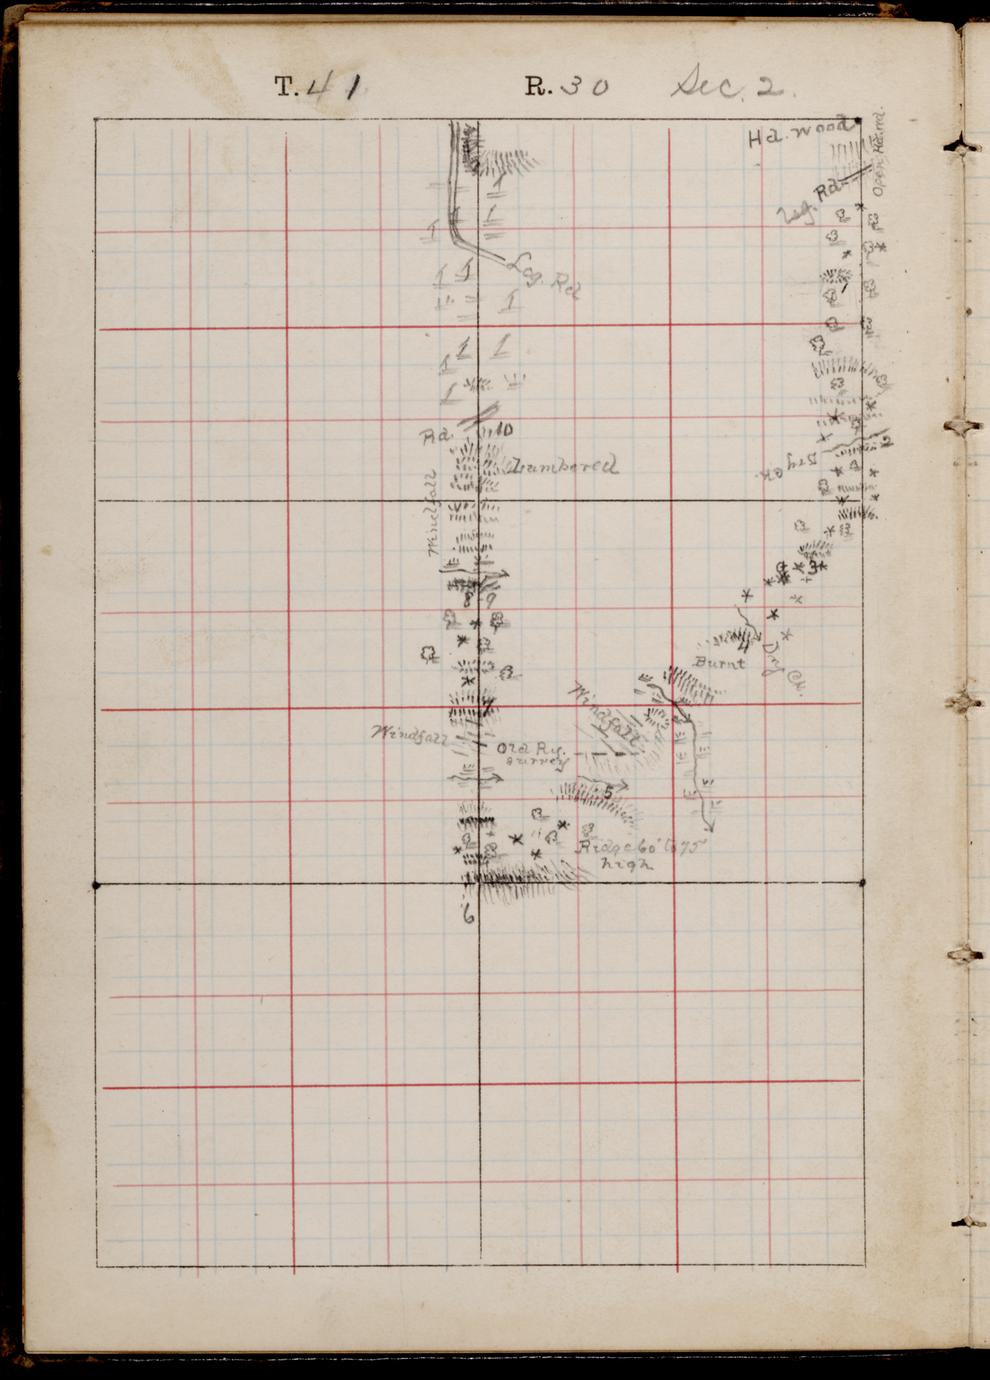 T. 41 R. 30 Sec. 2.
Hd. wood
Open Hd. wd.
Log. Rd.
Log. Rd
1
Rd.
10
Lumbered
Windfall
Dry Ck.
2
3
8 9
4
Burnt
Dry Ck.
7
Windfall
Windfall
Old Ry.
survey
5
Ridge 60' to 75'
high
6